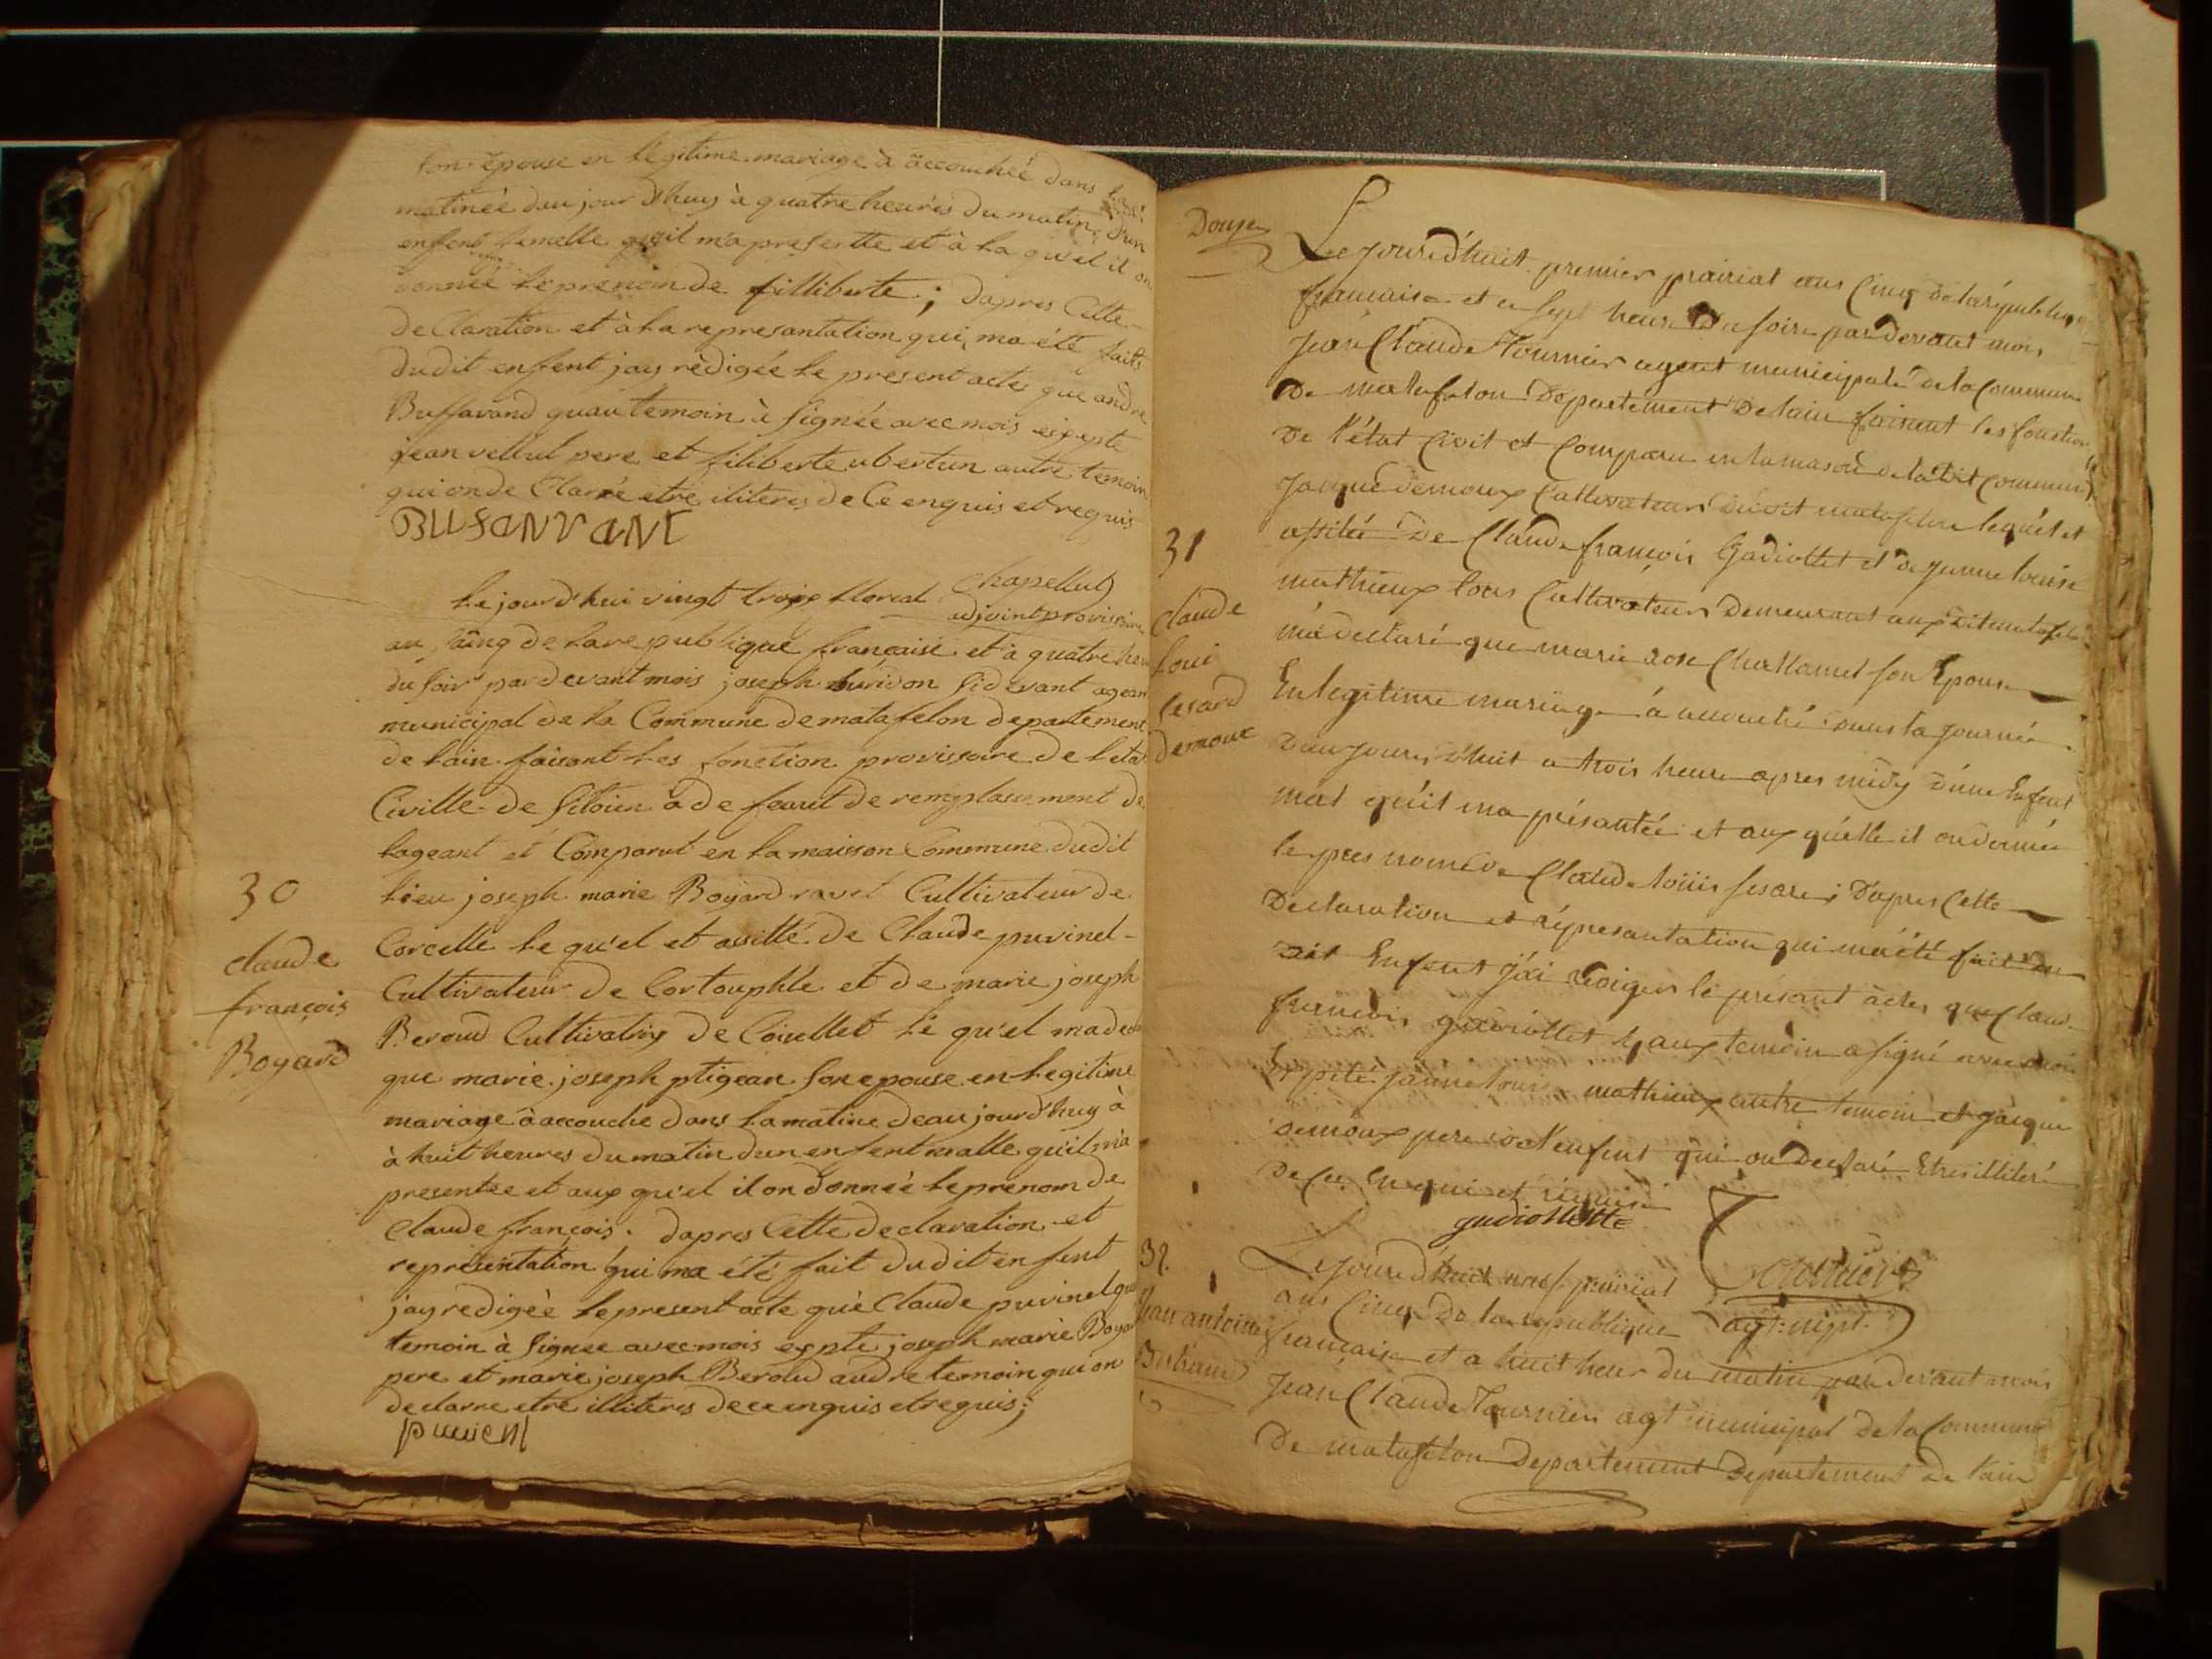 son épouse en légitime mariage à accouchéé dans la
matinéé daujour d'huy à quatre heures du matin, d'un
enfent femelle qu'il m'a presentte et à la qu'el il on
donnéé le prenom de filliberte; dapres Cette
déClaration et à la represantation qui ma été faitte
dudit enfent jay rédigéé le present acte que andre
Buffavand quau temoin à signéé avec mois exepte
jean vellut pere et filiberte ubertun autre temoin
qui on de Clarré etre iliteres de Ce enquis et requis
BUFANVANT
Chapellut
adjoint provissoire
Le jourd'hui vingt troix floreal
an sainq de la re publique française et à quatre heure
du soir par devant mois joseph buridon sidevant agean
municipal de la Commune de matafelon departement
de lain faisant les fonction provissoire de leta
Civille de sitoien à de feaut de remplasement de
lageant et Comparut en la maisson Commune dudit
lieu joseph marie Boyard ravet Cultivateur de
Corcelle le qu'el et assitté de Claude puvinel
Cultivateur de Cortouphle et de marie joseph
Beroud Cultivatrix de Coiselet le qu'el ma de
que marie joseph ptigean son epouse en legitime
mariage à accouche dans la matine deaujourd'huy à
à huit heures du matin d'un enfent malle qu'il m'a
presentee et aux qu'el il on donnéé le prenom de
Claude françois. dapres Cette declaration et
représentation qui ma été fait dudit enfent
jay redigéé le present acte que Claude puvinel qu
temoin à signee avec mois expté joseph marie Boyar
pere et marie joseph Beroud audre temoin qui on
declarre etre illiteres de ce enquis et requis;
puvienl
30
claude
françois
Boyard
Douze
Le jourd'huit premier prairial ans Cinq de la républiq
francaise et a sept heure du soire par devant moi
Jean Claude Tournier agent municipale de la Commune
de matafelon Departement de lain faisant les fonction
de l'état Civil et Comparu en la maison de la dit Commune
Jacque demoux Cultivateur dudit matafelon lequel et
assitée de Claude francois Gadiollet et de janne louise
mathieux tous Cultivateurs Demeurant aux dit matafelon
ma declaré que marie rose Challamel son Epouse
En legitime mariage a accouché dans la journée
daujourd'huit a trois heure apres midy d'un Enfent
mal qu'il ma présantéé et aux quelle il on donnée
le pres nom de Claude loüis sesare; D'apres Cette
Declaration et représantation qui m'a été fait du
dit Enfent j'ai rédiger le présant actes que Claud
francois gadiollet quaux temoin a signé avec moi
Exepté janne louise mathieux autre temoin et jacque
demoux pere de l'enfent qui on Declaré Etre illiteré
de Ce Enqui et réquis
gudiollette
Tournier
agt. mpl.
31
claude
loui
Cesard
demoux
32
Jean antoine
Bertrand
Le jourd'huit neuf prairial
ans Cinq De la republique
francaise et a huit heur du matin par devant moi
Jean Claude Tournier agt municipal de la Commune
de matafelon Departement Departement de lain